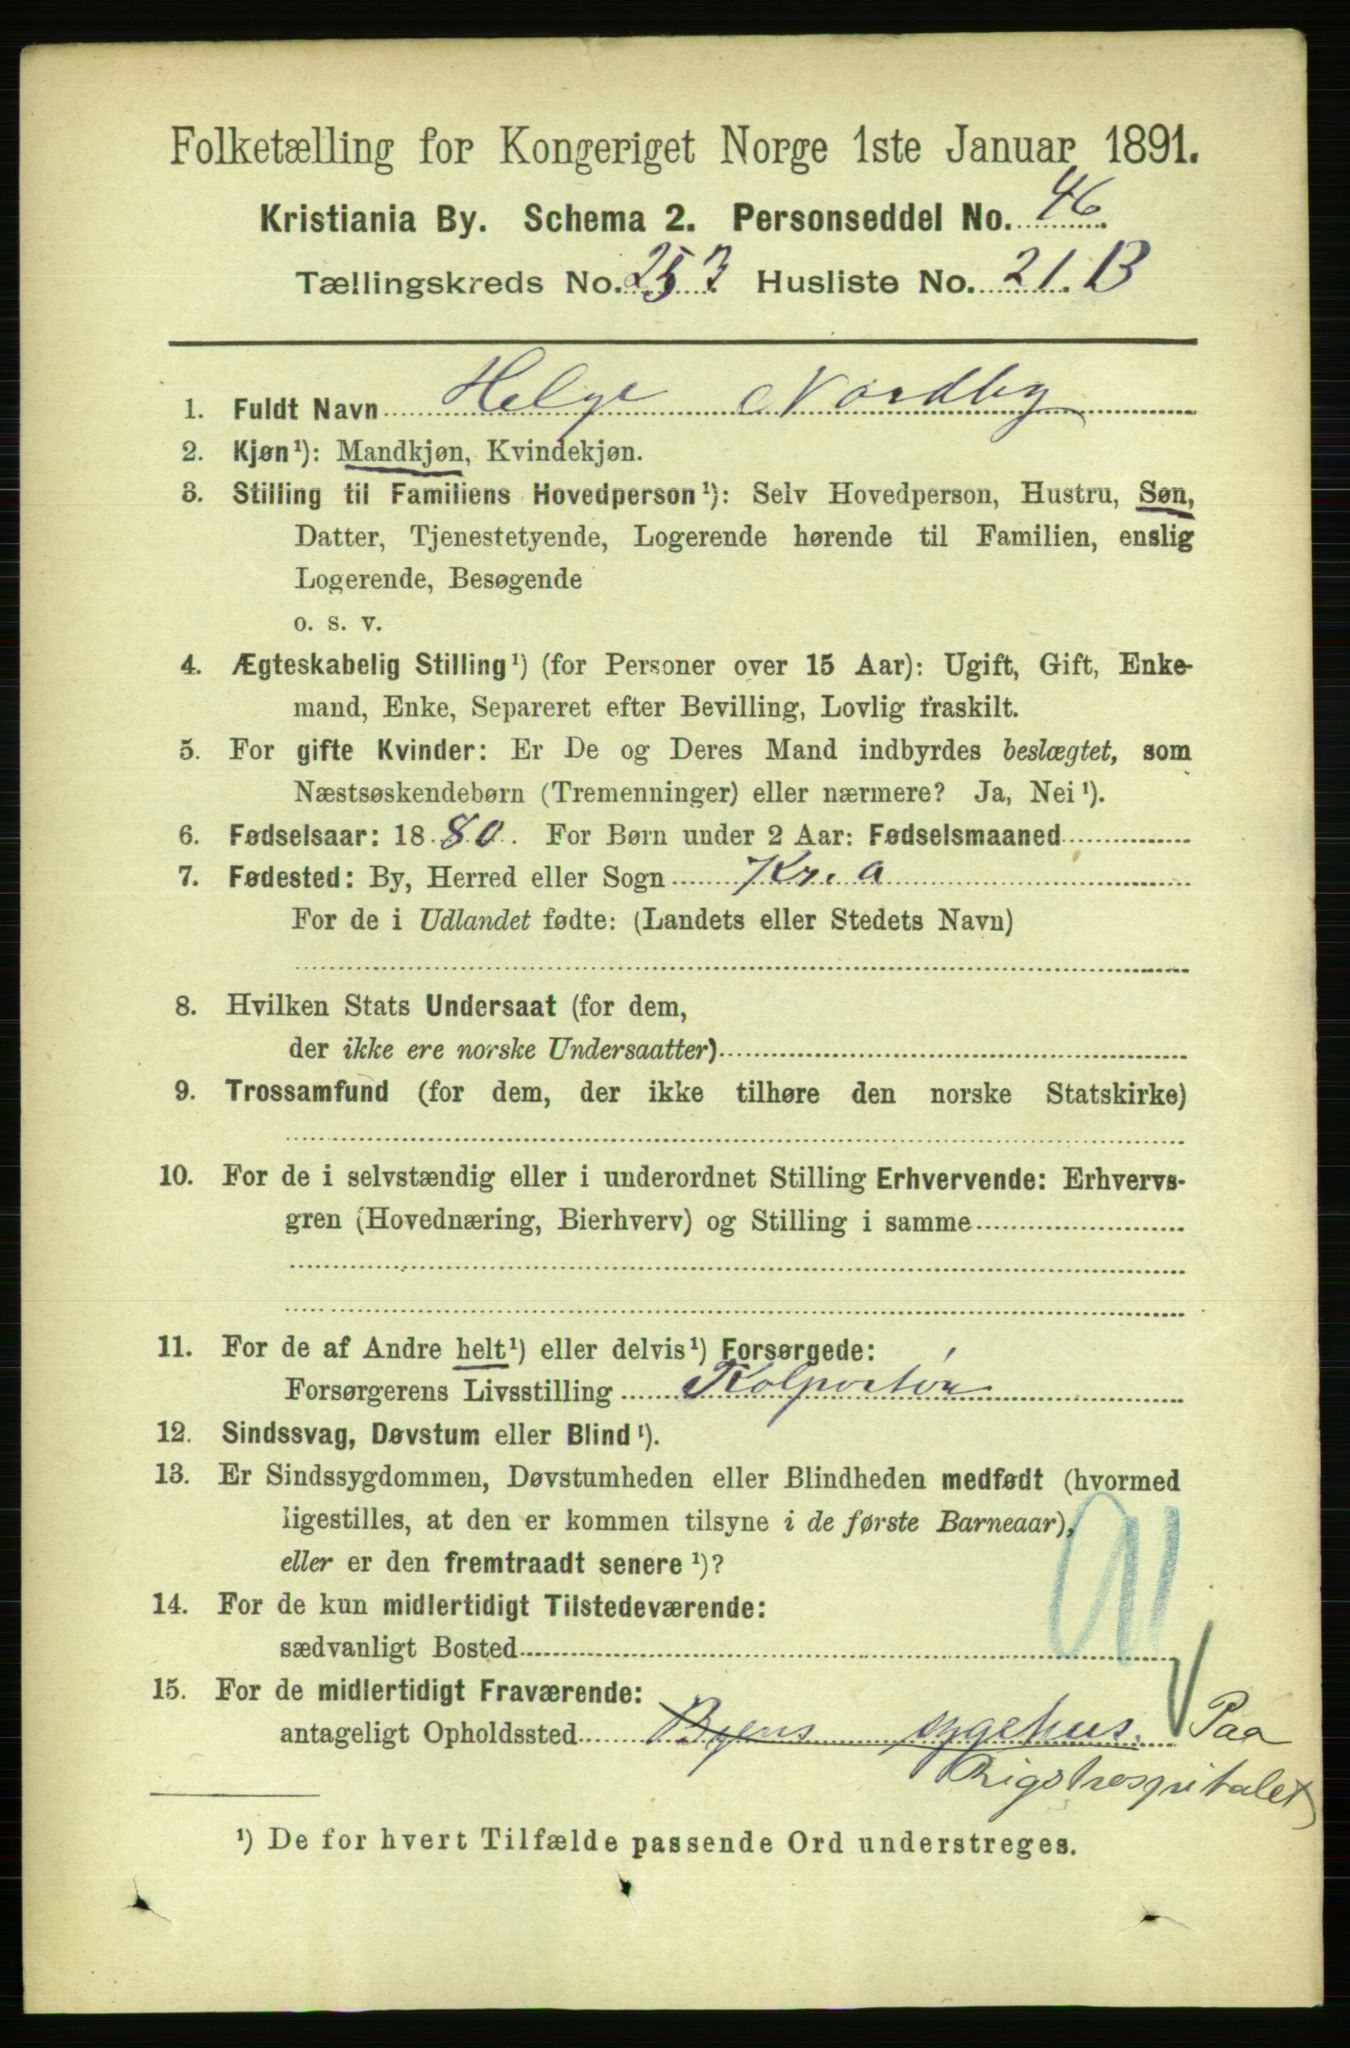 Folketælling for Kongeriget Norge 1ste Januar 1891.
Kristiania By. Schema 2. Personseddel No. 46
Tællingskreds No. 253 Husliste No. 21. B
1. Fuldt Navn Helge Nordby
2. Kjøn¹): Mandkjøn, Kvindekjøn.
3. Stilling til Familiens Hovedperson¹): Selv Hovedperson, Hustru, Søn,
Datter, Tjenestetyende, Logerende hørende til Familien, enslig
Logerende, Besøgende
o. s. v.
4. Ægteskabelig Stilling¹) (for Personer over 15 Aar): Ugift, Gift, Enke-
mand, Enke, Separeret efter Bevilling, Lovlig fraskilt.
5. For gifte Kvinder: Er De og Deres Mand indbyrdes beslægtet, som
Næstsøskendebørn (Tremenninger) eller nærmere? Ja, Nei¹).
6. Fødselsaar: 1880. For Børn under 2 Aar: Fødselsmaaned
7. Fødested: By, Herred eller Sogn Kr. a
For de i Udlandet fødte: (Landets eller Stedets Navn)
8. Hvilken Stats Undersaat (for dem,
der ikke ere norske Undersaatter)
9. Trossamfund (for dem, der ikke tilhøre den norske Statskirke)
10. For de i selvstændig eller i underordnet Stilling Erhvervende: Erhvervs-
gren (Hovednæring, Bierhverv) og Stilling i samme
11. For de af Andre helt¹) eller delvis¹) Forsørgede:
Forsørgerens Livsstilling Kolportør
12. Sindssvag, Døvstum eller Blind¹).
13. Er Sindssygdommen, Døvstumheden eller Blindheden medfødt (hvormed
ligestilles, at den er kommen tilsyne i de første Barneaar),
eller er den fremtraadt senere¹)?
14. For de kun midlertidigt Tilstedeværende:
sædvanligt Bosted
15. For de midlertidigt Fraværende:
antageligt Opholdssted Byens sygehus. Paa
Rigshospitalet
¹) De for hvert Tilfælde passende Ord understreges.